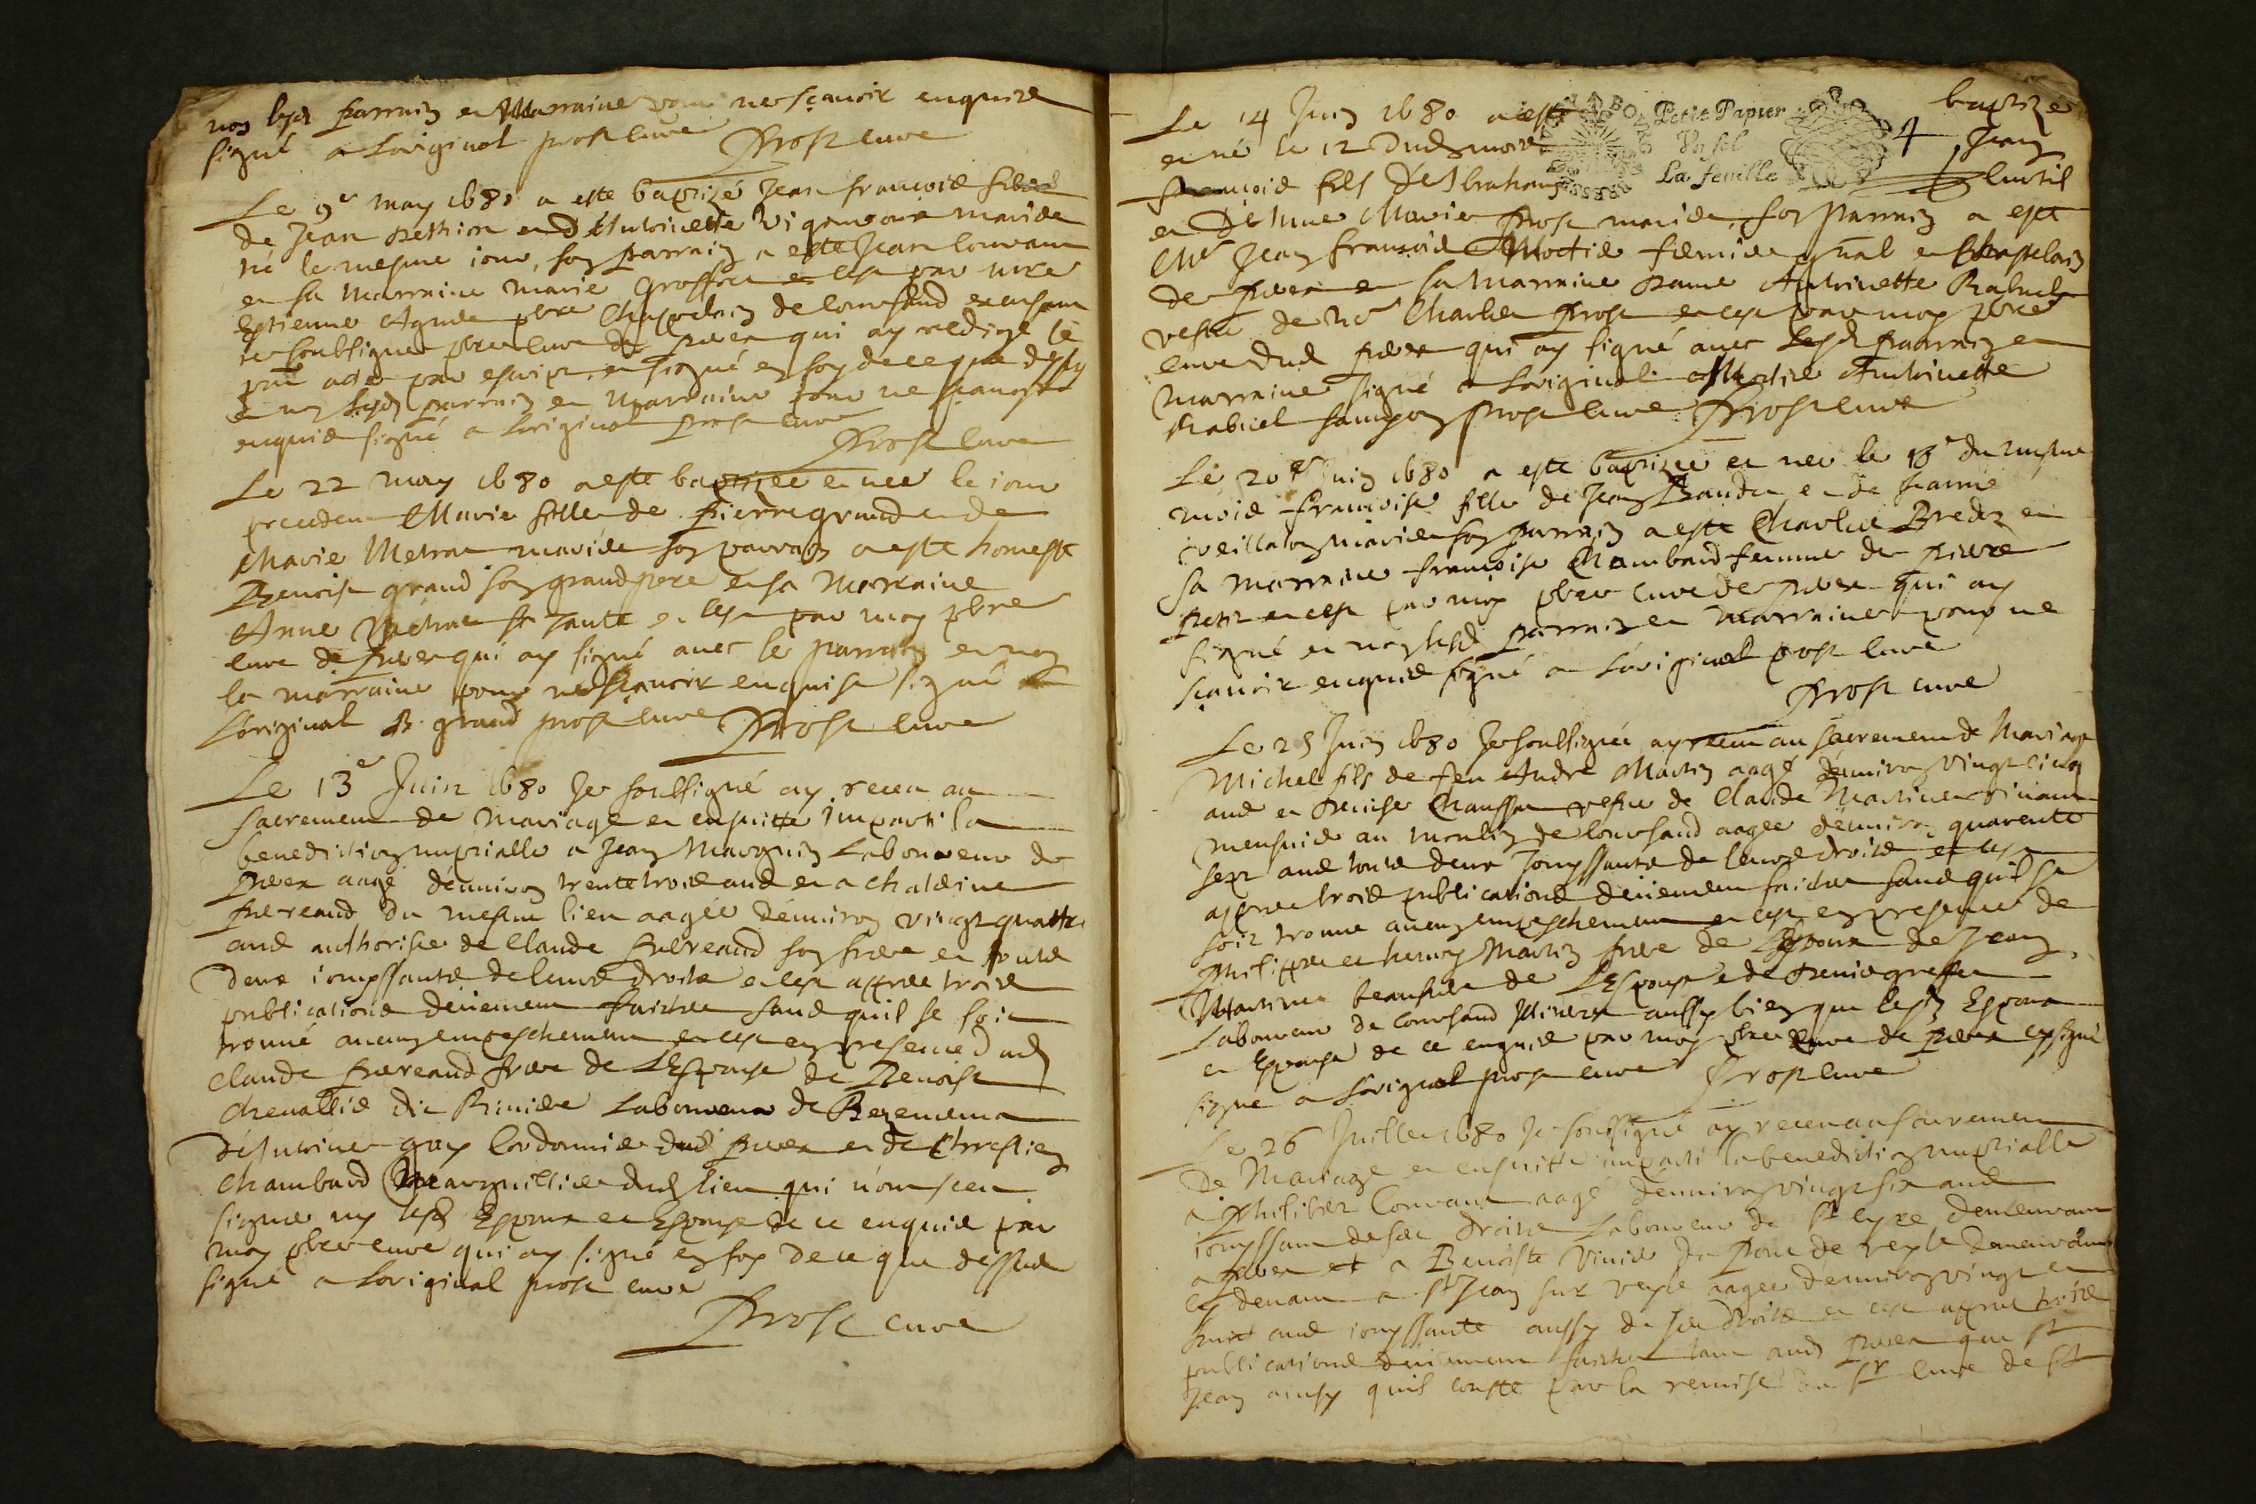 non lesd parrain et Marraine pour ne sçavoir enquise
signé a Loriginal prost curé Prost cure
Le 9e may 1680 a este baptizé Jean francois fils
de Jean et d'Anthoinette mariés
né le mesme iour, son parrain a este Jean Convam
et sa Marraine Marie et cest par
Estienne pbre Chappelain de
ie soubsigné pbre curé de qui ay redigé le
acte par escript, et signé en foy de ce que dessus
et non lesd parrain et marraine pour ne sçavoir
enquis signé a Loriginal prost curé
Prost cure
Le 22 may 1680 a este baptizée et née le iour
precedent Marie fille de pierre grand et de
Marie Metrat mariés son parrain a este honeste
Benoist grand son grand pere et sa Marraine
Anne Metrat sa Tante et cest par moy pbre
cure de qui ay signé avec le parrain et non
la marraine pour ne sçavoir enquise signé a
Loriginal B. grand prost cure Prost cure
Le 13e Juin 1680 Je soubsigné ay receu au
sacrement de Mariage et ensuitte imparti la
benediction nuptialle a Jean Marguin Laboureur de
aagé denviron trente trois ans et a Claudine
du mesme lieu aagée denviron vingt quattre
ans authorisée de Claude son frere et touts
deux iouyssants de leurs droits et cest apres trois
publications deüement faictes sans quil se soit
trouvé aucun empeschement et cest en presence dud
Claude frere de LEspouse de Benoist
Chevallié dit Riviere Laboureur de
d'Antoine guy Cordonnier dud et de Chrestien
Chambard Marguillier dud lieu qui nont sceu
signer ny lesd Espoux et Espouse de ce enquis par
moy pbre cure qui ay signé en foy de ce que dessus
signé a Loriginal prost cure
Prost cure
Le 14 Juin 1680 a este baptizé
et né le 12 Dud mois Jean
francois fils d'Abraham
Petit Papier
Vn sol
La feuille
4
et de Marie Prost mariés, son parrain a este
Mre Jean francois et Chappelain
de et sa Marraine Dame Anthoinette Rabuel
vesve de Mr Charles Prost et cest par moy pbre
cure dud qui ay signé avec lesd parrain et
marraine signé a Loriginal Anthoinette
Rabuel prost cure Prost cure
Le 20e Juin 1680 a este baptizée et née le 18e du mesme
mois francoise fille de Jean et de Jeanne
mariés son parrain a este Charles
sa marraine francoise Chambard femme de pierre
petit et cest par moy pbre cure de qui ay
signé et non lesd parrain et marraine pour ne
sçavoir enquis signé a Loriginal prost cure
Prost cure
Le 25 Juin 1680 Je soubsigné ay receu au sacrement de Mariage
Michel fils de feu André Martin aagé denviron vingt cinq
ans et Denise vesve de Claude Martinet vivant
au moulin de aagée denviron quarente
sept ans touts deux Jouyssants de leurs droits et cest
apres trois publications deüement faictes sans quil se
soit trouvé aucun empeschement et cest en presence de
Philippe et Martin frere de LEspoux de Jean
Martinet beaufrere de LEspouse et de Denis
Laboureur de aussy bien que lesd Espoux
et Espouse de ce enquis par moy pbre cure de
signé a Loriginal prost cure Prost cure
Le 26 Juillet 1680 Je soubsigné ay receu au sacrement
de Mariage et ensuitte imparti la benediction nuptialle
a Philibert Convam aagé denviron vingt six ans
iouyssant de ses droits Laboureur de St cyre demeurant
a et a Benoiste Vivié de Pont de veyle demeurant
cy devant a St Jean sur veyle aagée denviron vingt et
huict ans iouyssante aussy de ses droits et cest apres trois
publications deüement faictes tant aud que St
Jean ainsy quil conste par la remise du Sr cure de St